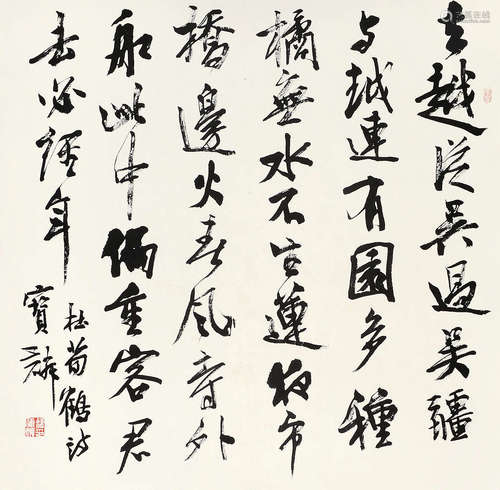 去越從吳過吳疆
与越連有園多種
橘無水不生蓮夜市
橋邊火春風寺外
船此中偏重客君
去必經年
杜荀鶴詩
寶